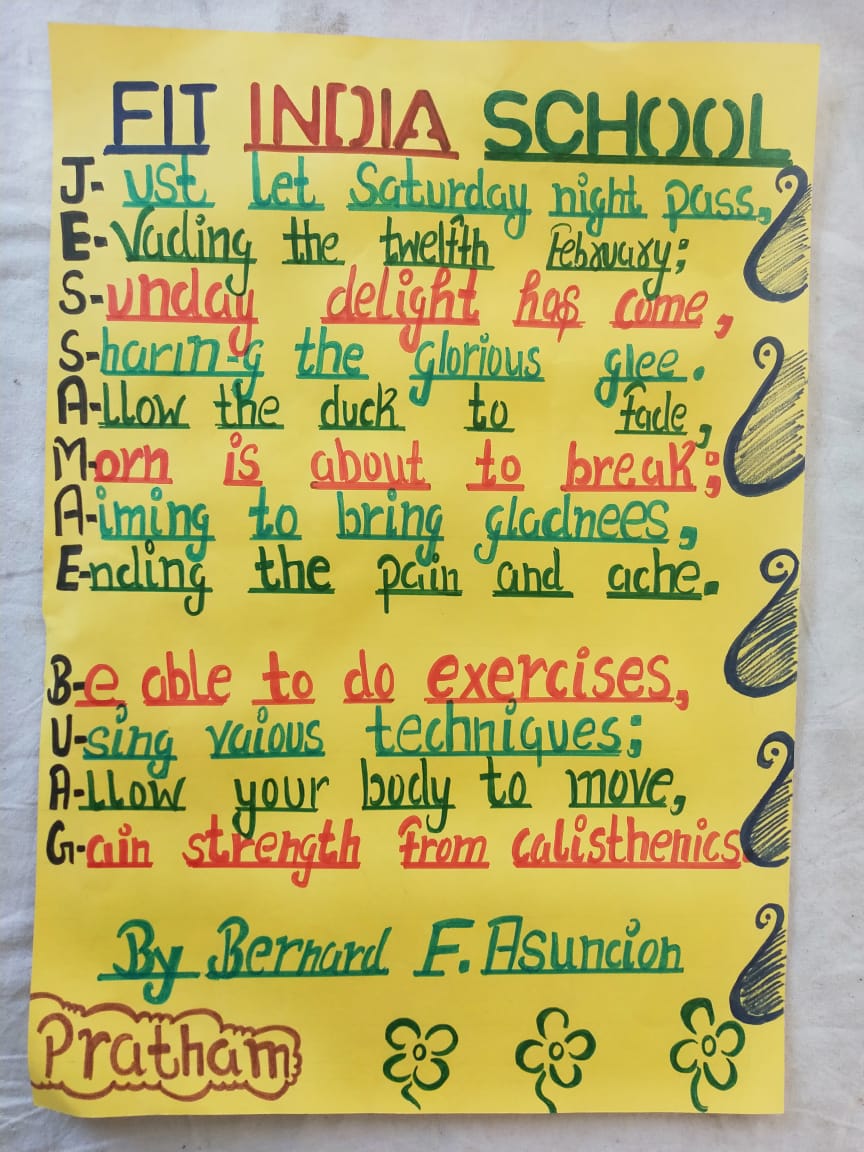 FIT INDIA SCHOOL
J-ust let Saturday night pass,
E-vading the twelfth February;
S-unday delight has come,
S-haring the glorious glee.
A-llow the duck to fade,
M-orn is about to break;
A-iming to bring gladnees,
E-nding the pain and ache.
B-e able to do exercises,
U-sing vaious techniques;
A-llow your body to move,
G-ain strength from calisthenics.
By Bernard F. Asuncion
Pratham